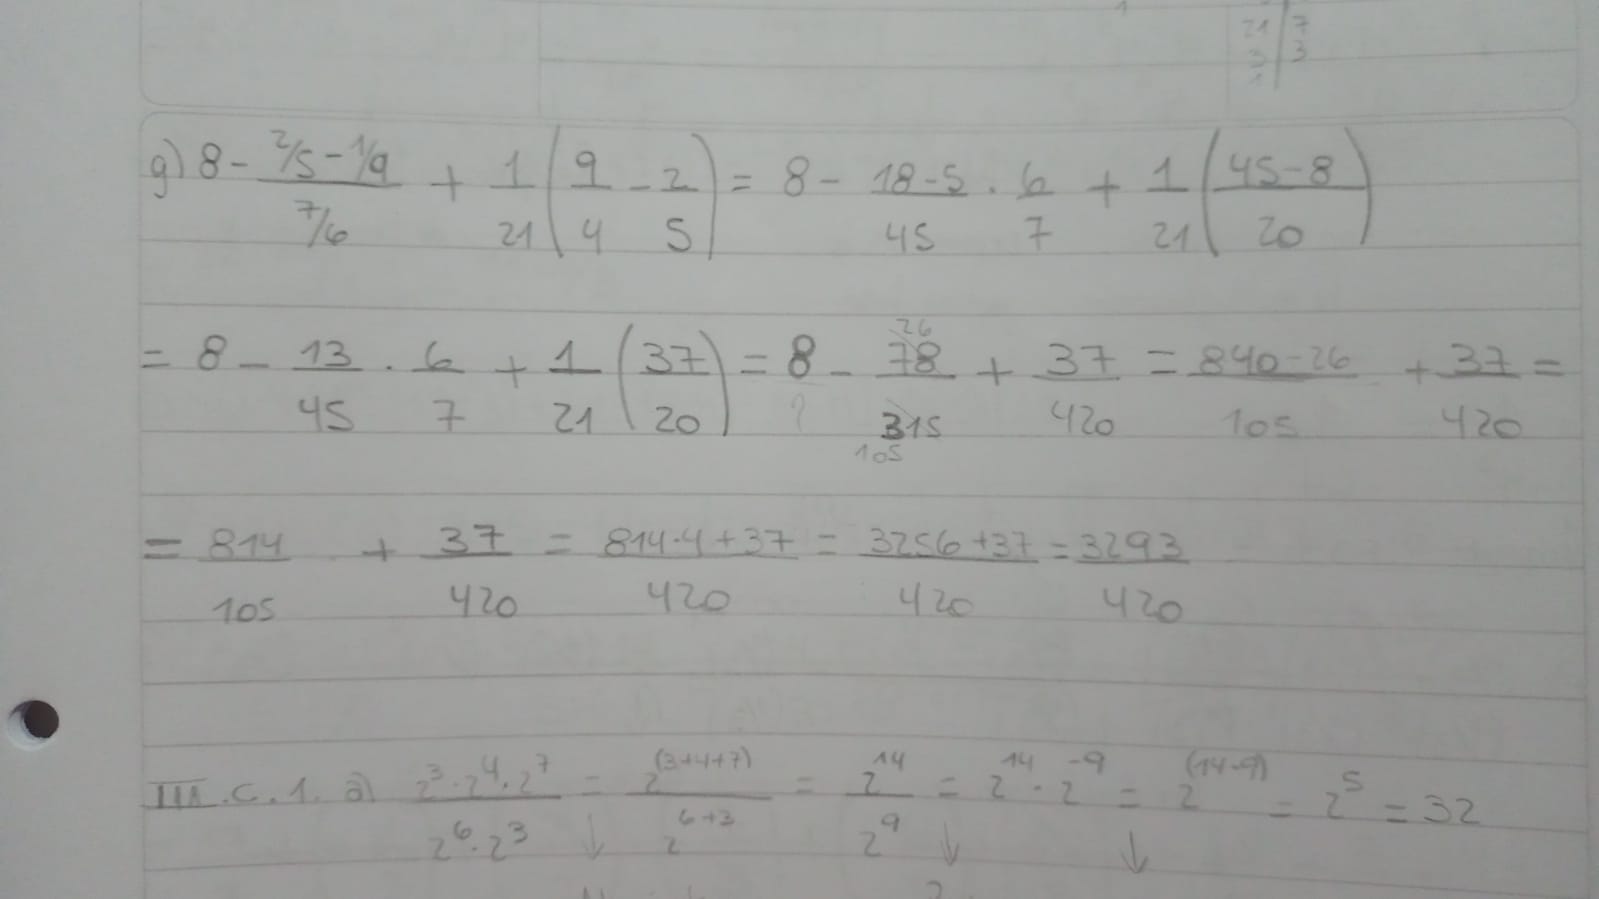 21 | 7
3 | 3
1
g) 8 - (2/5 - 1/9)/(7/6) + 1/21 (9/4 - 2/5) = 8 - (18-5)/45 · 6/7 + 1/21 ((45-8)/20)
= 8 - 13/45 · 6/7 + 1/21 (37/20) = 8 - 78/315 26/105 + 37/420 = (840-26)/105 + 37/420 =
= 814/105 + 37/420 = (814·4+37)/420 = (3256+37)/420 = 3293/420
III.C.1. a) (2^3 · 2^4 · 2^7)/(2^6 · 2^3) = 2^(3+4+7)/2^(6+3) = 2^14/2^9 = 2^14 · 2^-9 = 2^(14-9) = 2^5 = 32
↓ ↓ ↓